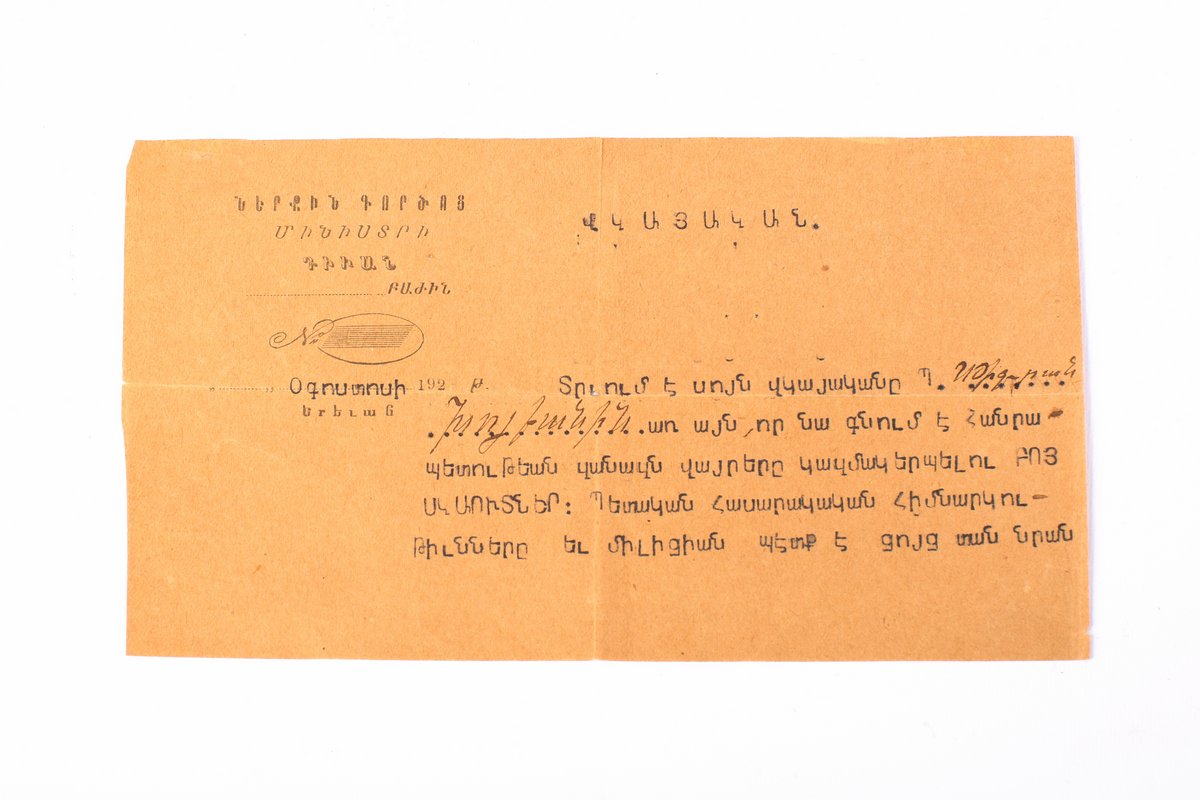 ՆԵՐՔԻՆ ԳՈՐԾՈՑ
ՄԻՆԻՍՏՐԻ
ԴԻՒԱՆ
ԲԱԺԻՆ
№
Օգոստոսի 192 թ.
Երեւան
ՎԿԱՅԱԿԱՆ.
Տրւում է սոյն վկայականը Պ.
առ այն, որ նա գնում է Հանրա-
պետութեան զանազն վայրերը կազմակերպելու ԲՈՅ
ՍԿԱՈՒՏՆԵՐ: Պետական Հասարակական Հիմնարկու-
թիւնները եւ միլիցիան պէտք է ցոյց տան նրան